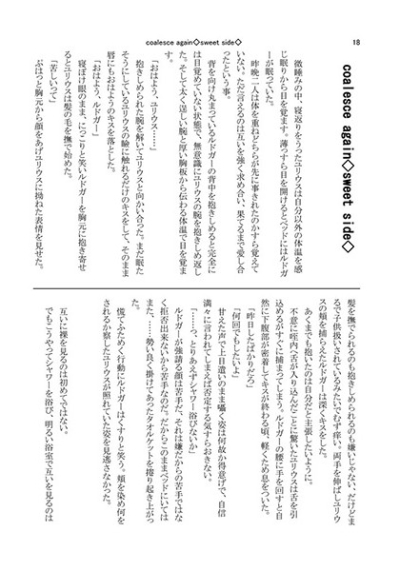 coalesce again◇sweet side◇
18
coalesce again◇sweet side◇
微睡みの中、寝返りをうったユリウスは自分以外の体温を感
じ眠りから目を覚ます。薄っすら目を開けるとベッドにはルドガ
ーが眠っていた。
昨晩二人は体を重ねどちらが先に事されたのかすら覚えて
いない。ただ言えるのは互いを強く求め合い、果てるまで愛し合
ったという事。
背を向け丸まっているルドガーの背中を抱きしめると完全に
は目覚めていない状態で、無意識にユリウスの腕を抱きしめ返し
た。そして太く逞しい腕と厚い胸板から伝わる体温で目を覚ま
す。
「おはよう、ユリウス……」
抱きしめられた腕を解いてユリウスと向かい合った。まだ眠た
そうにしているユリウスの瞼に触れるだけのキスをして、そのまま
唇にもおはようのキスを落とした。
「おはよう、ルドガー」
寝ぼけ眼のまま、にっこりと笑いルドガーを胸元に抱き寄せ
るとユリウスは髪の毛を撫で始めた。
「苦しいって」
ぷはっと胸元から顔をあげユリウスに拗ねた表情を見せた。
髪を撫でられるのも抱きしめられるのも嫌いじゃない。だけどま
るで子供扱いされているみたいでむず痒い。両手を伸ばしユリウ
スの頬を捕らえたルドガーは深くキスをした。
あくまでも抱いたのは自分だと主張したいように。
不意に咥内へ舌が入り込んだことに驚いたユリウスは舌を引
込めるがすぐに捕まってしまう。ルドガーの腰に手を回すと自
然に下腹部が密着してキスが終わる頃、軽くため息をついた。
「昨日したばかりだろ」
「何回でもしたいよ」
甘えた声で上目遣いのまま囁く姿は何故か得意げで、自信
満々に言われてしまえば否定する気すらおきない。
「……っ、とりあえずシャワー浴びないか」
ルドガーが強請る顔は苦手だ。それは嫌だからの苦手ではな
く拒否出来ないから苦手なのだ。だからこのままベッドにいては
また、……勢い良く掛けてあったタオルケットを捲り起き上がっ
た。
慌てふためく行動にルドガーはくすりと笑う。頬を染め何を
されるか察したユリウスが照れていた姿を見逃さなかった。
互いに裸を見るのは初めてではない。
でもこうやってシャワーを浴び、明るい浴室で互いを見るのは